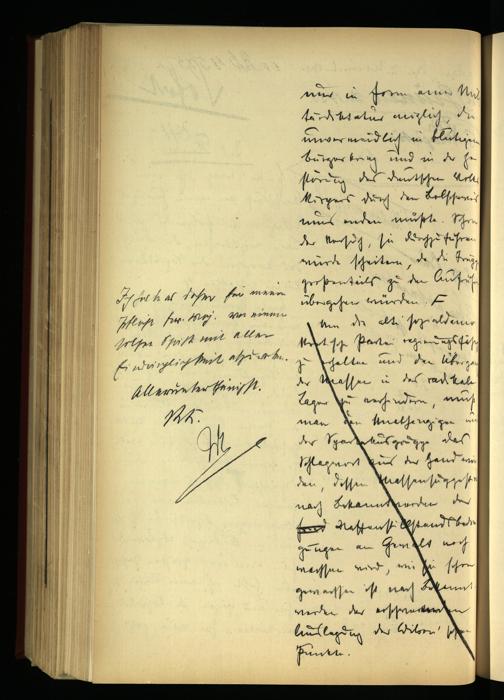 nur in Form einer Mili
tärdiktatur möglich, die
unvermeidlich in blutigem
Bürgerkrieg und in der Zer
störung des deutschen Volks
körpers durch den Bolschewis
mus enden müßte. Schon
der Versuch, sie durchzuführen
würde scheitern, da die Truppen
großenteils zu den Aufrührern
übergehen würden. F
Um die alt sozialdemo
kratische Partei regierungsfähig
zu erhalten und den Übergang
der Massen in das radikale
Lager zu verhindern, muß
man den Unabhängigen und
der Spartakusgruppe das
Schlagwort aus der Hand win
den, dessen Massensuggestion
nach Bekanntwerden der
Waffenstillstandsbedin
gungen an Gewalt noch
wachsen wird, wie sie schon
gewachsen ist nach Bekannt
werden der
Auslegung der Wilson'schen
Punkte.
Ich halte es daher für meine
Pflicht Ew. Maj. von einem
solchen Schritt mit aller
Eindringlichkeit abzuraten.
Alleruntertänigst.